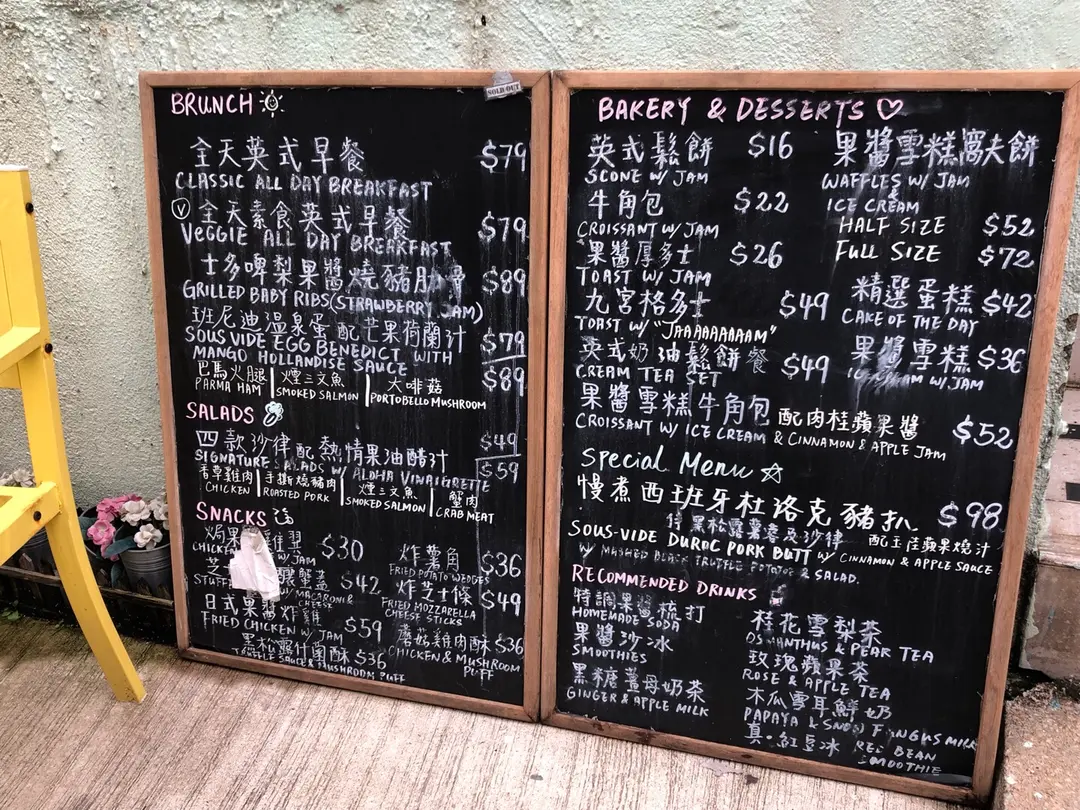 BRUNCH
SOLD OUT
全天英式早餐 $79
CLASSIC ALL DAY BREAKFAST
V 全天素食英式早餐 $79
VEGGIE ALL DAY BREAKFAST
士多啤梨果醬燒豬肋骨 $89
GRILLED BABY RIBS (STRAWBERRY JAM)
班尼迪溫泉蛋配芒果荷蘭汁
SOUS VIDE EGG BENEDICT WITH $79
MANGO HOLLANDISE SAUCE
巴馬火腿 | 煙三文魚 | 大啡菇 $89
PARMA HAM | SMOKED SALMON | PORTOBELLO MUSHROOM
SALADS
四款沙律配熱情果油醋汁 $49
SIGNATURE SALADS W/ ALOHA VINAIGRETTE $59
香草雞肉 | 手撕燒豬肉 | 煙三文魚 | 蟹肉
CHICKEN | ROASTED PORK | SMOKED SALMON | CRAB MEAT
SNACKS
焗果 雞翼 $30
CHICKEN W/ JAM
芝 釀蟹蓋 $42
STUFF W/ MACARONI & CHEESE
日式果醬炸雞 $59
FRIED CHICKEN W/ JAM
黑松露什菌酥 $36
TRUFFLE SAUCE & MUSHROOM PUFF
炸薯角 $36
FRIED POTATO WEDGES
炸芝士條 $49
FRIED MOZZARELLA
CHEESE STICKS
蘑菇雞肉酥 $36
CHICKEN & MUSHROOM
PUFF
BAKERY & DESSERTS
英式鬆餅 $16
SCONE W/ JAM
牛角包 $22
CROISSANT W/ JAM
果醬厚多士 $26
TOAST W/ JAM
九宮格多士 $49
TOAST W/ "JAAAAAAAAAM"
英式奶油鬆餅餐 $49
CREAM TEA SET
果醬雪糕窩夫餅
WAFFLES W/ JAM
&
ICE CREAM
HALF SIZE $52
FULL SIZE $72
精選蛋糕 $42
CAKE OF THE DAY
果醬雪糕 $36
ICE CREAM W/ JAM
果醬雪糕牛角包 配肉桂蘋果醬 $52
CROISSANT W/ ICE CREAM & CINNAMON & APPLE JAM
Special Menu
慢煮西班牙杜洛克豬扒 $98
伴黑松露薯蓉及沙律 配玉桂蘋果燒汁
SOUS-VIDE DUROC PORK BUTT W/ CINNAMON & APPLE SAUCE
W/ MASHED BLACK TRUFFLE POTATO & SALAD.
RECOMMENDED DRINKS
特調果醬梳打
HOMEMADE SODA
果醬沙冰
SMOOTHIES
黑糖薑母奶茶
GINGER & APPLE MILK
桂花雪梨茶
OSMANTHUS & PEAR TEA
玫瑰蘋果茶
ROSE & APPLE TEA
木瓜雪耳鮮奶
PAPAYA & SNOW FUNGUS MILK
真·紅豆冰 RED BEAN
SMOOTHIE